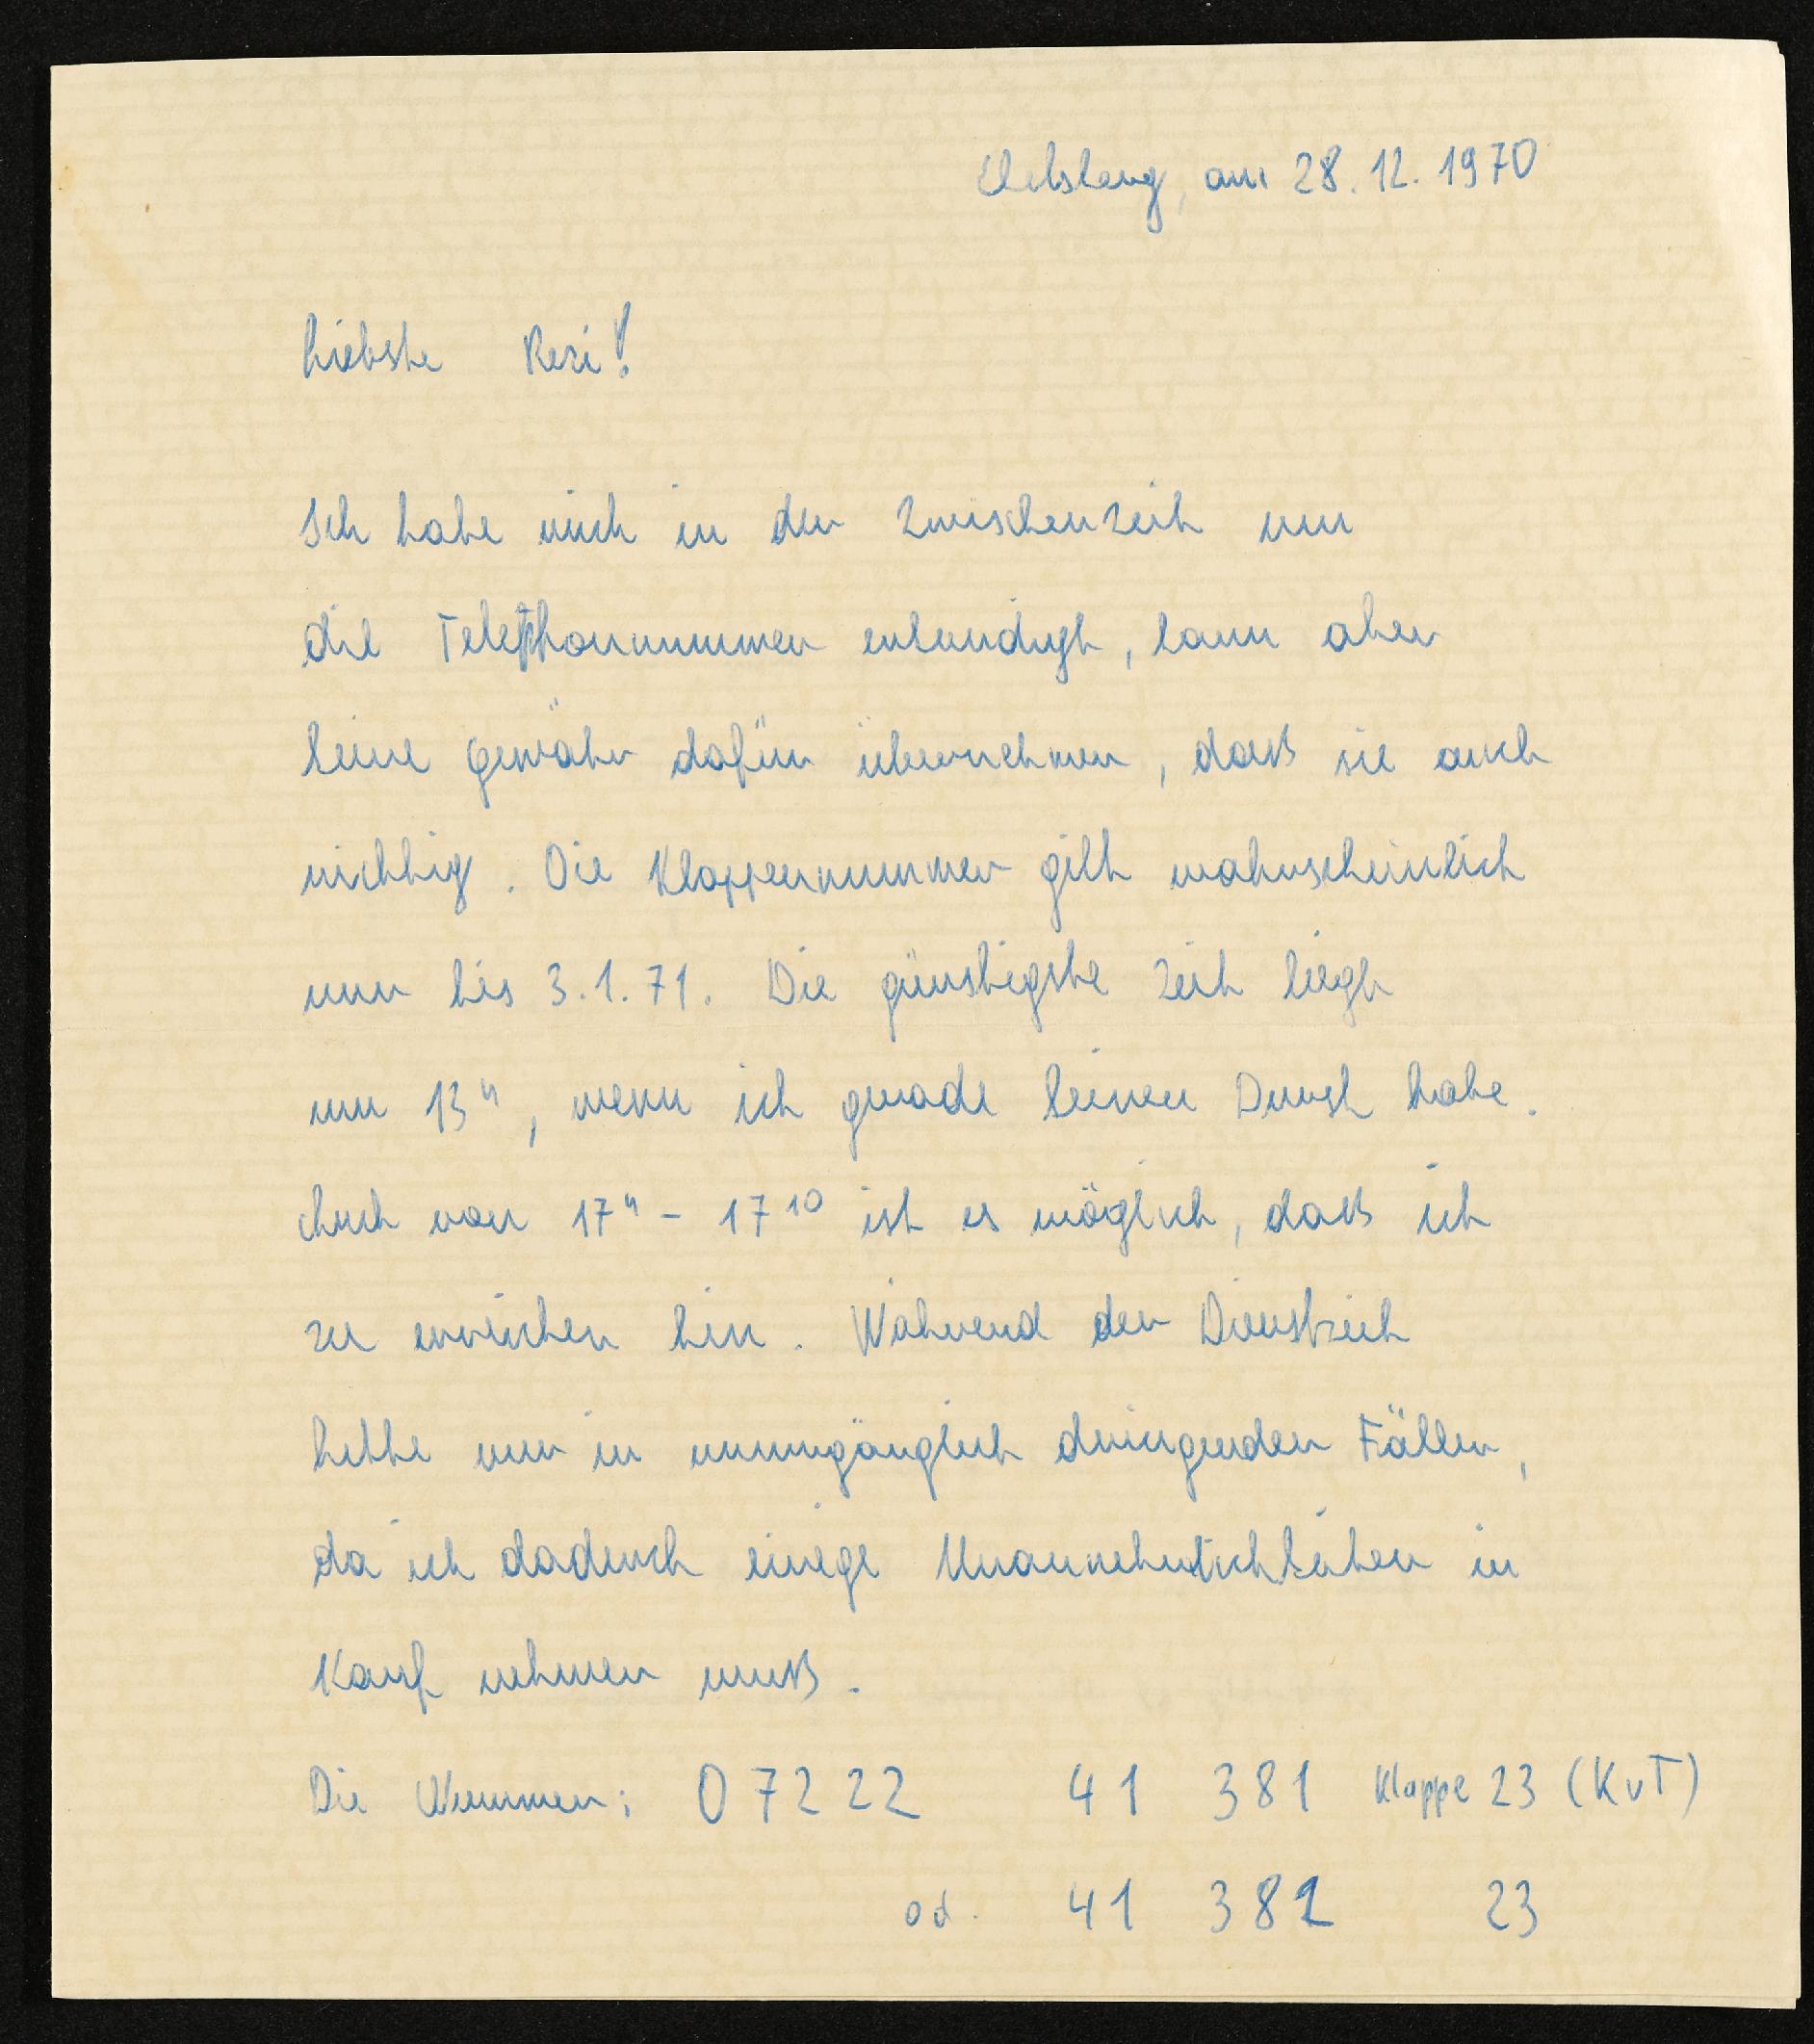 Ebelsberg, am 28.12.1970
Liebste Resi!
Ich habe mich in der Zwischenzeit um
die Telephonnummer erkundigt, kann aber
keine Gewähr dafür übernehmen, daß sie auch
richtig. Die Klappennummer gilt wahrscheinlich
nur bis 3.1.71. Die günstigste Zeit liegt
um 13ʰ, wenn ich gerade keinen Dienst habe.
Auch von 17ʰ - 17¹⁰ ist es möglich, daß ich
zu erreichen bin. Während der Dienstzeit
bitte nur in unumgänglich dringenden Fällen,
da ich dadurch einige Unannehmlichkeiten in
Kauf nehmen muß.
Die Nummer: 07222 41 381 Klappe 23 (KvT)
od. 41 382 23